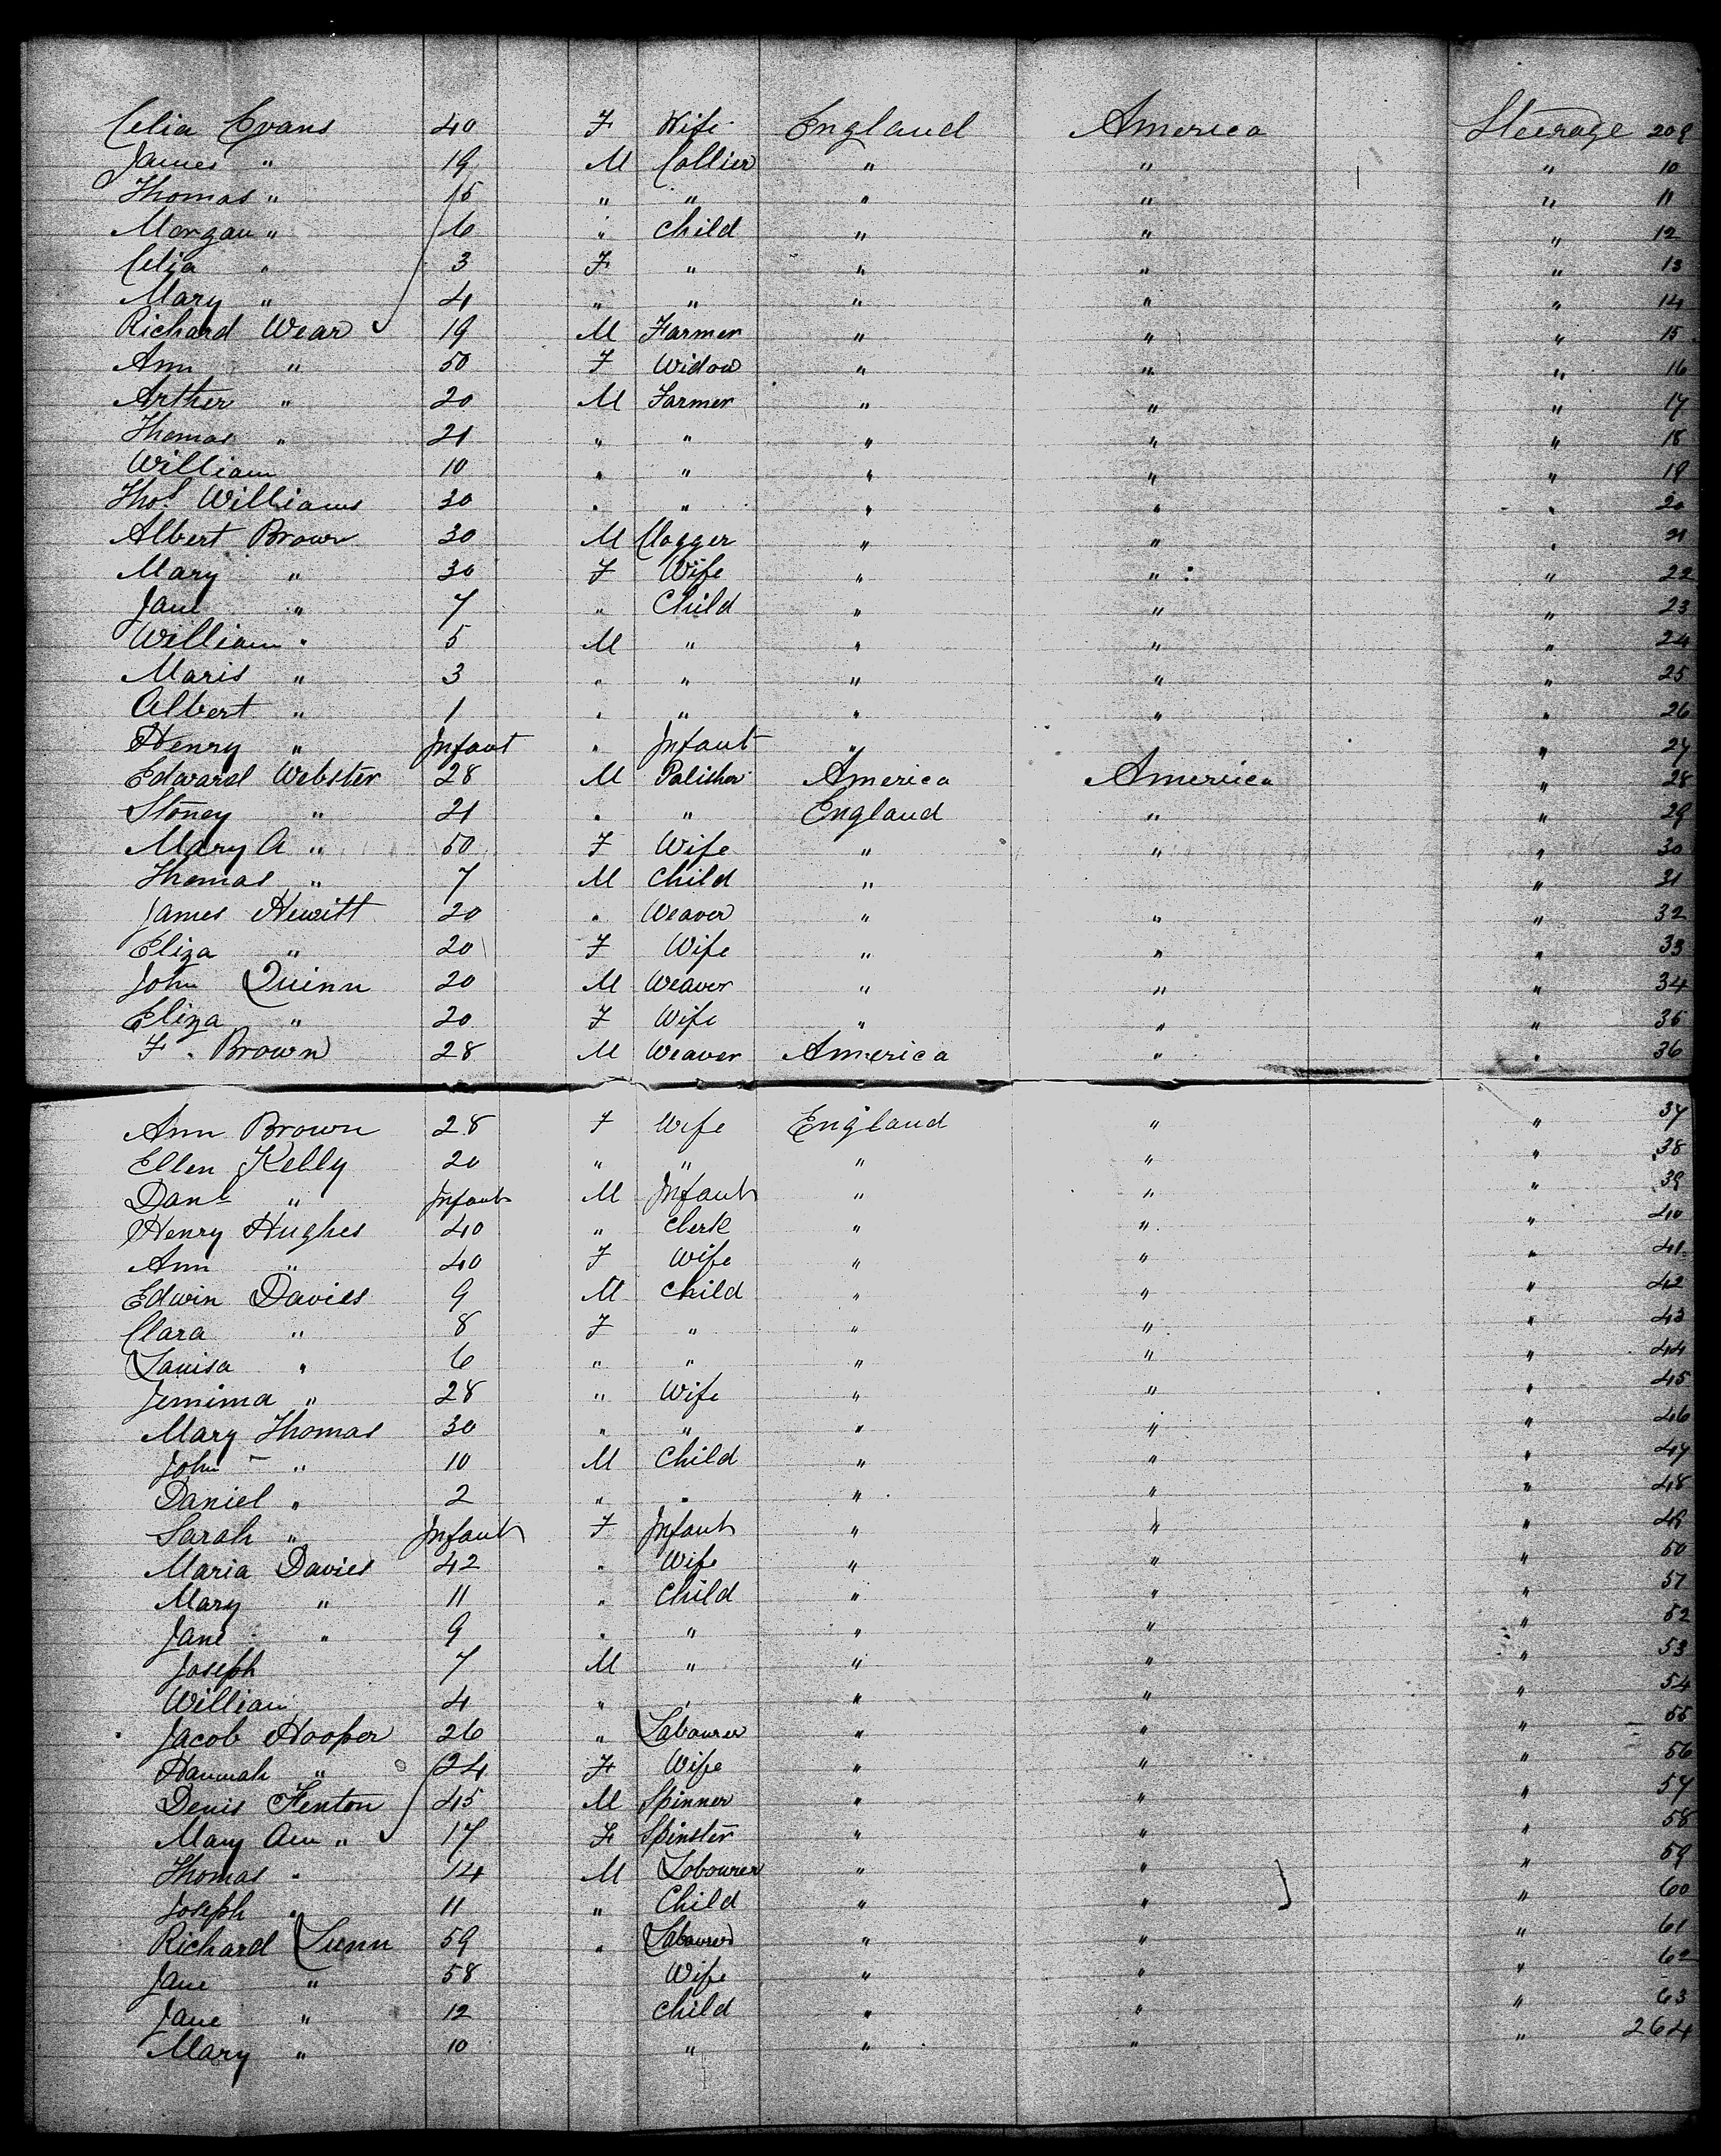 Celia Evans 40 F Wife England America Steerage 209
James " 19 M Collier " " " 10
Thomas " 15 " " " " " 11
Morgan " 6 " Child " " " 12
Celia " 3 F " " " " 13
Mary " 4 " " " " " 14
Richard Wear 19 M Farmer " " " 15
Ann " 50 F Widow " " " 16
Arther " 20 M Farmer " " " 17
Thomas " 21 " " " " " 18
William 10 " " " " " 19
Thos Williams 30 " " " " " 20
Albert Brown 30 M Clogger " " " 21
Mary " 30 F Wife " " " 22
Jane " 7 " Child " " " 23
William " 5 M " " " " 24
Maris " 3 " " " " " 25
Albert " 1 " " " " " 26
Henry " Infant " Infant " " 27
Edward Webster 28 M Polisher America America " 28
Stoney " 21 " " England " " 29
Mary A " 50 F Wife " " " 30
Thomas " 7 M Child " " " 31
James Hewitt 20 " Weaver " " " 32
Eliza " 20 F Wife " " " 33
John Quinn 20 M Weaver " " " 34
Eliza " 20 F Wife " " " 35
F. Brown 28 M Weaver America " " 36
Ann Brown 28 F Wife England " " 37
Ellen Kelly 20 " " " " " 38
Danl " Infant M Infant " " " 39
Henry Hughes 40 " Clerk " " " 40
Ann " 40 F Wife " " " 41
Edwin Davies 9 M Child " " " 42
Clara " 8 F " " " " 43
Louisa " 6 " " " " " 44
Jemima " 28 " Wife " " " 45
Mary Thomas 30 " " " " " 46
John " 10 M Child " " " 47
Daniel " 2 " " " " " 48
Sarah " Infant F Infant " " " 49
Maria Davies 42 " Wife " " " 50
Mary " 11 " Child " " " 51
Jane " 9 " " " " " 52
Joseph 7 M " " " " 53
William 4 " " " " " 54
Jacob Hooper 26 " Labourer " " " 55
Hannah " 24 F Wife " " " 56
Denis Fenton 45 M Spinner " " " 57
Mary Ann " 17 F Spinster " " " 58
Thomas " 14 M Labourer " " " 59
Joseph " 11 " Child " " " 60
Richard Lunn 59 " Labourer " " " 61
Jane " 58 Wife " " " 62
Jane " 12 Child " " " 63
Mary " 10 " " " " 264